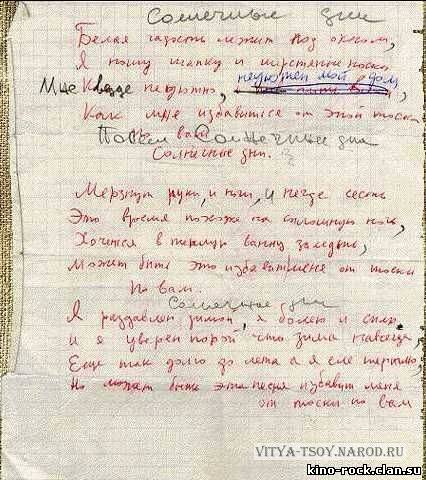 Солнечные дни
Белая гадость лежит под окном,
Я ношу шапку и шерстяные носки
Мне везде неуютно, неуютен мой дом,
Как мне избавиться от этой тоски
по вам Солнечные дни
Солнечные дни.
Мерзнут руки и ноги, и негде сесть
Это время похоже на сплошную ночь,
Хочется в теплую ванну залезть,
Может быть это избавит меня от тоски
По вам.
Солнечные дни
Я раздавлен зимою, я болею и сплю
и я уверен порой что зима навсегда,
Еще так долго до лета а я еле терплю,
Но может быть эта песня избавит меня
от тоски по вам
VITYA-TSOY.NAROD.RU
kino-rock.clan.su